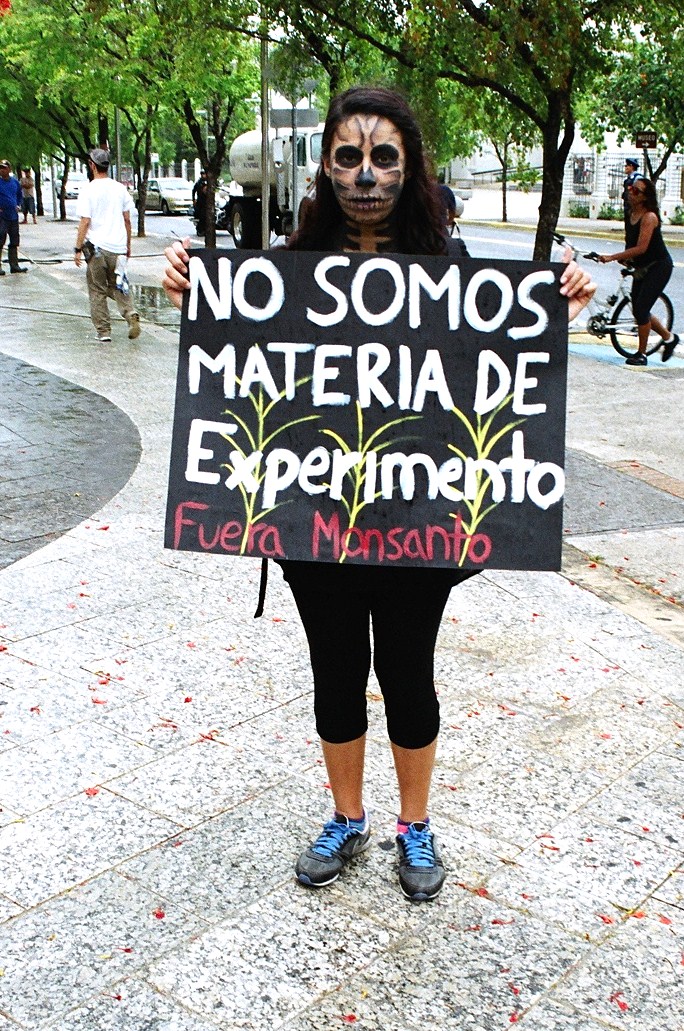 NO SOMOS
MATERIA DE
Experimento
Fuera Monsanto